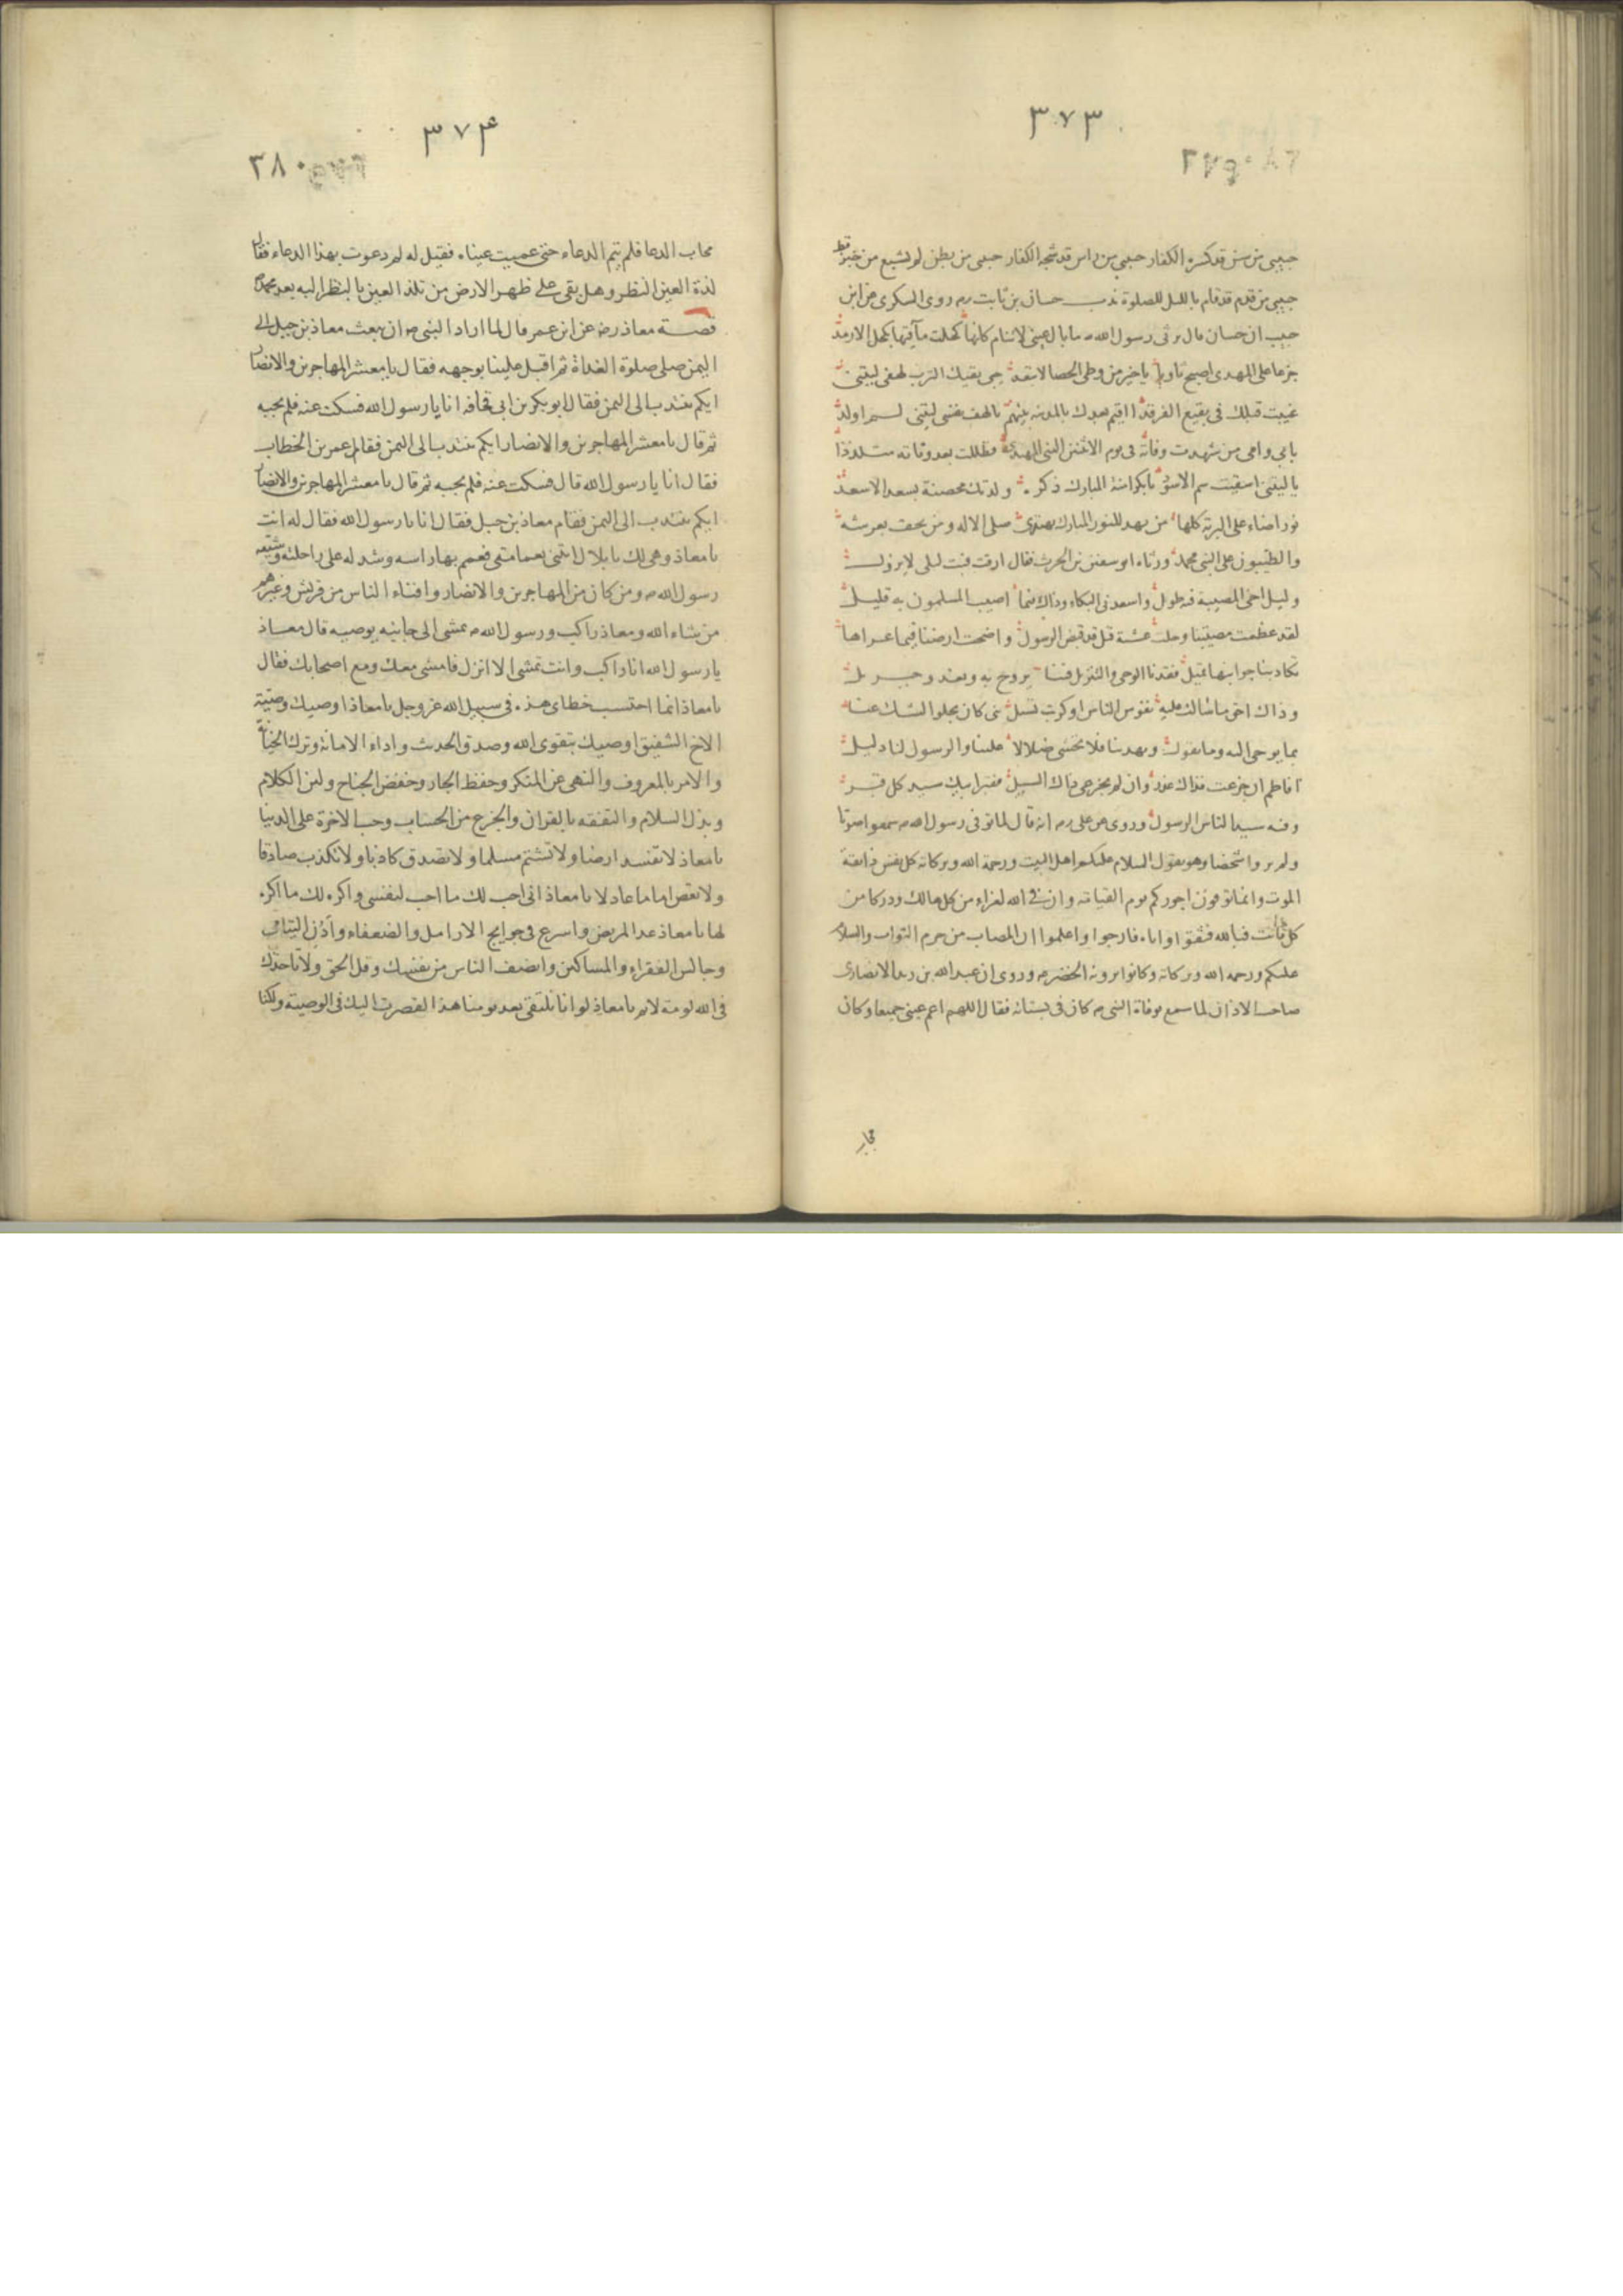 ٣٧٣
٣٧٩
حبيبى من سن قد كسره الكفار حبيبى من راس قد شجه الكفار حبيبى من بطن لم يشبع من خبز قط
حبيبى من قدم قد قام بالليل للصلوة ندب حسان بن ثابت رم روى السكرى عن ابن
حبيب ان حسان قال يرثى رسول الله ص ما بال عينى لا تنام كانها كحلت مآقيها بكحل الارمد
جزعا على المهدى اصبح ثاويا يا خير من وطى الحصا لا تبعد جبى يقيك الترب لهفى ليتنى
غيبت قبلك فى بقيع الغرقد ااقيم بعدك بالمدينه بينهم يا لهف نفسى ليتنى لم اولد
بابى وامى من شهدت وفاته فى يوم الاثنين النبى المهتدى فظللت بعد وفاته متلددا
يا ليتنى اسقيت سم الاسود يا بكر امنة المبارك ذكره ولدتك محصنة بسعد الاسعد
نور اضاء على البرية كلها من يهد للنور المبارك يهتدى صلى الاله ومن يحف بعرشه
والطيبون على النبى محمد ورثاه ابو سفين بن الحرث فقال ارقت فبت ليلى لا يزول
وليل اخى المصيبة فيه طول واسعدنى البكاء وذاك فيما اصيب المسلمون به قليل
لقد عظمت مصيبتنا وجلت عشية قيل قد قبض الرسول واضحت ارضنا فيما عراها
تكاد بنا جوانبها تميل فقدنا الوحى والتنزيل فينا يروح به ويغدو جبريل
وذاك احق ما سالت عليه نفوس الناس او كربت تسيل نبى كان يجلو الشك عنا
بما يوحى اليه وما يقول ويهدينا فلا نخشى ضلالا علينا والرسول لنا دليل
افاطم ان جزعت فذاك عذر وان لم تجزعى ذاك السبيل فقبر ابيك سيد كل قبر
وفيه سيد الناس الرسول وروى عن على رم انه قال لما توفى رسول الله ص سمعوا صوتا
ولم يروا شخصا وهو يقول السلام عليكم اهل البيت ورحمة الله وبركاته كل نفس ذائقة
الموت وانما توفون اجوركم يوم القيامة وان فى الله لعزاء من كل هالك ودركا من
كل فائت فبالله فثقوا واياه فارجوا واعلموا ان المصاب من حرم الثواب والسلام
عليكم ورحمه الله وبركاته وكانوا يرونه الخضر ص وروى ان عبد الله بن زيد الانصارى
صاحب الاذان لما سمع بوفاة النبى ص كان فى بستانه فقال اللهم اعم عينى جميعا وكان
مجاب
٣٧۴
٣٨٠
مجاب الدعا فلم يتم الدعاء حتى عميت عيناه فقيل له لم دعوت بهذا الدعاء فقال
لذة العين النظر وهل بقى على ظهر الارض من تلذ العين بالنظر اليه بعد محمد ص
قصة معاذ رضه عن ابن عمر قال لما اراد النبى ص ان يبعث معاذ بن جبل الى
اليمن صلى صلوة الغداة ثم اقبل علينا بوجهه فقال يا معشر المهاجرين والانصار
ايكم ينتدب الى اليمن فقال ابو بكر بن ابى قحافه انا يا رسول الله فسكت عنه فلم يجبه
ثم قال يا معشر المهاجرين والانصار ايكم ينتدب الى اليمن فقام عمر بن الخطاب
فقال انا يا رسول الله قال فسكت عنه فلم يجبه ثم قال يا معشر المهاجرين والانصار
ايكم ينتدب الى اليمن فقام معاذ بن جبل فقال انا يا رسول الله فقال له انت
يا معاذ وهى لك يا بلال ائتنى بعمامتى فعمم بها راسه وشد له على راحلته وشيعه
رسول الله ص ومن كان من المهاجرين والانصار وافناء الناس من قريش وغيرهم
من شاء الله ومعاذ راكب ورسول الله ص يمشى الى جانبه يوصيه قال معاذ
يا رسول الله انا راكب وانت تمشى الا انزل فامشى معك ومع اصحابك فقال
يا معاذ انما احتسب خطاى هذه فى سبيل الله عز وجل يا معاذ اوصيك وصية
الاخ الشفيق اوصيك بتقوى الله وصدق الحديث واداء الامانة وترك الخيانة
والامر بالمعروف والنهى عن المنكر وحفظ الجار وخفض الجناح ولين الكلام
وبذل السلام والتفقه بالقران والجزع من الحساب وحب الاخرة على الدنيا
يا معاذ لا تفسد ارضا ولا تشتم مسلما ولا تصدق كاذبا ولا تكذب صادقا
ولا تعص اماما عادلا يا معاذ انى احب لك ما احب لنفسى واكره لك ما اكره
لها يا معاذ عد المريض واسرع فى حوايج الارامل والضعفاء وادن اليتامى
وجالس الفقراء والمساكين وانصف الناس من نفسك وقل الحق ولا تاخذك
فى الله لومة لائم يا معاذ لو انا نلتقى بعد يومنا هذا لقصرت اليك فى الوصية ولكنا